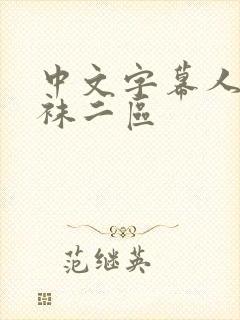 中文字幕人
袜二区
范继英